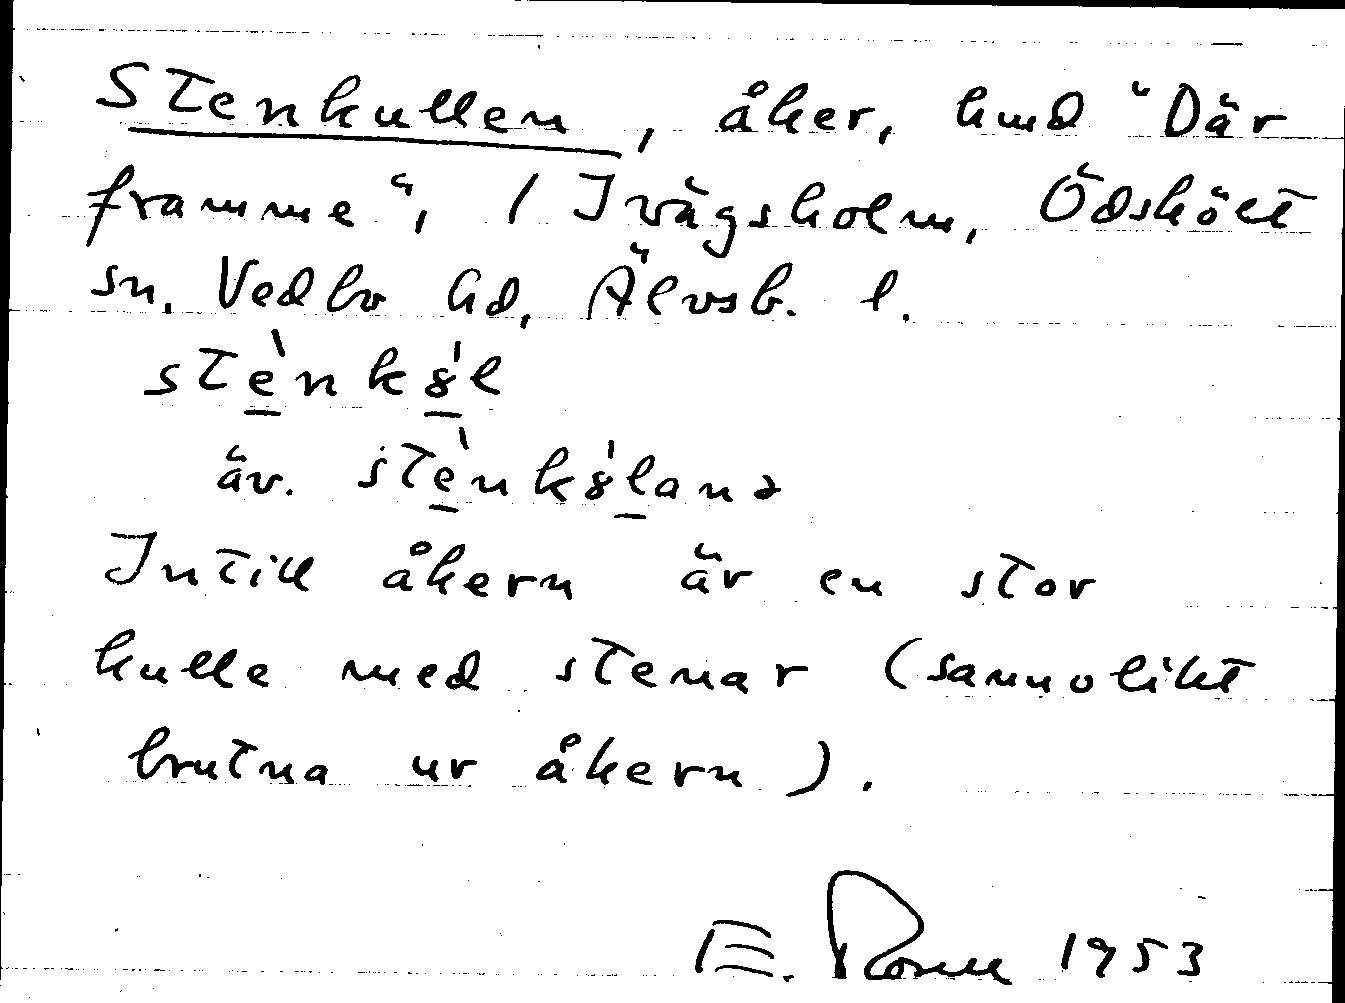 Stenkullen, åker, hmd "Där
framme", 1 Ivägsholm, Ödskölt
sn. Vedbo hd, Älvsb. l.
stè̱nkȣ̱́l
äv. stè̱nkȣ́ḻanə
Intill åkern är en stor
kulle med stenar (sannolikt
brutna ur åkern).
E. 1953